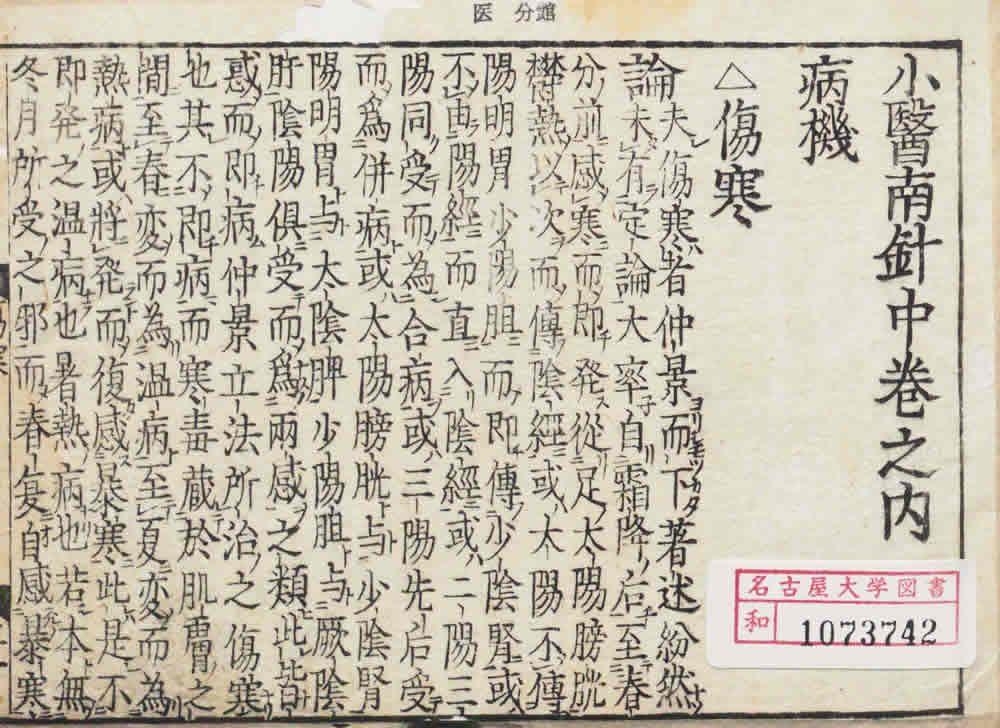 医 分館
小醫南針中巻之内
病機
△傷寒
論夫傷寒者仲景而下著述紛然
未有定論大率自霜降后至春
分前感寒而即発從足太陽膀胱
欝熱以次而傳陰經或太陽不傳
陽明胃少陽胆而即傳少陰腎或
不由陽經而直入陰經或二陽三
陽同受而為合病或三陽先后受
而為併病或太陽膀胱与少陰腎
陽明胃与太陰脾少陽胆与厥陰
肝陰陽俱受而爲兩感之類此皆
感而即病仲景立法所治之傷寒
也其不即病而寒毒蔵於肌膚之
間至春変而為温病至夏変而為
熱病或將発而復感暴寒此是不
即発之温病也暑熱病也若本無
冬月所受之邪而春夏自感暴寒
名古屋大学図書
和 1073742